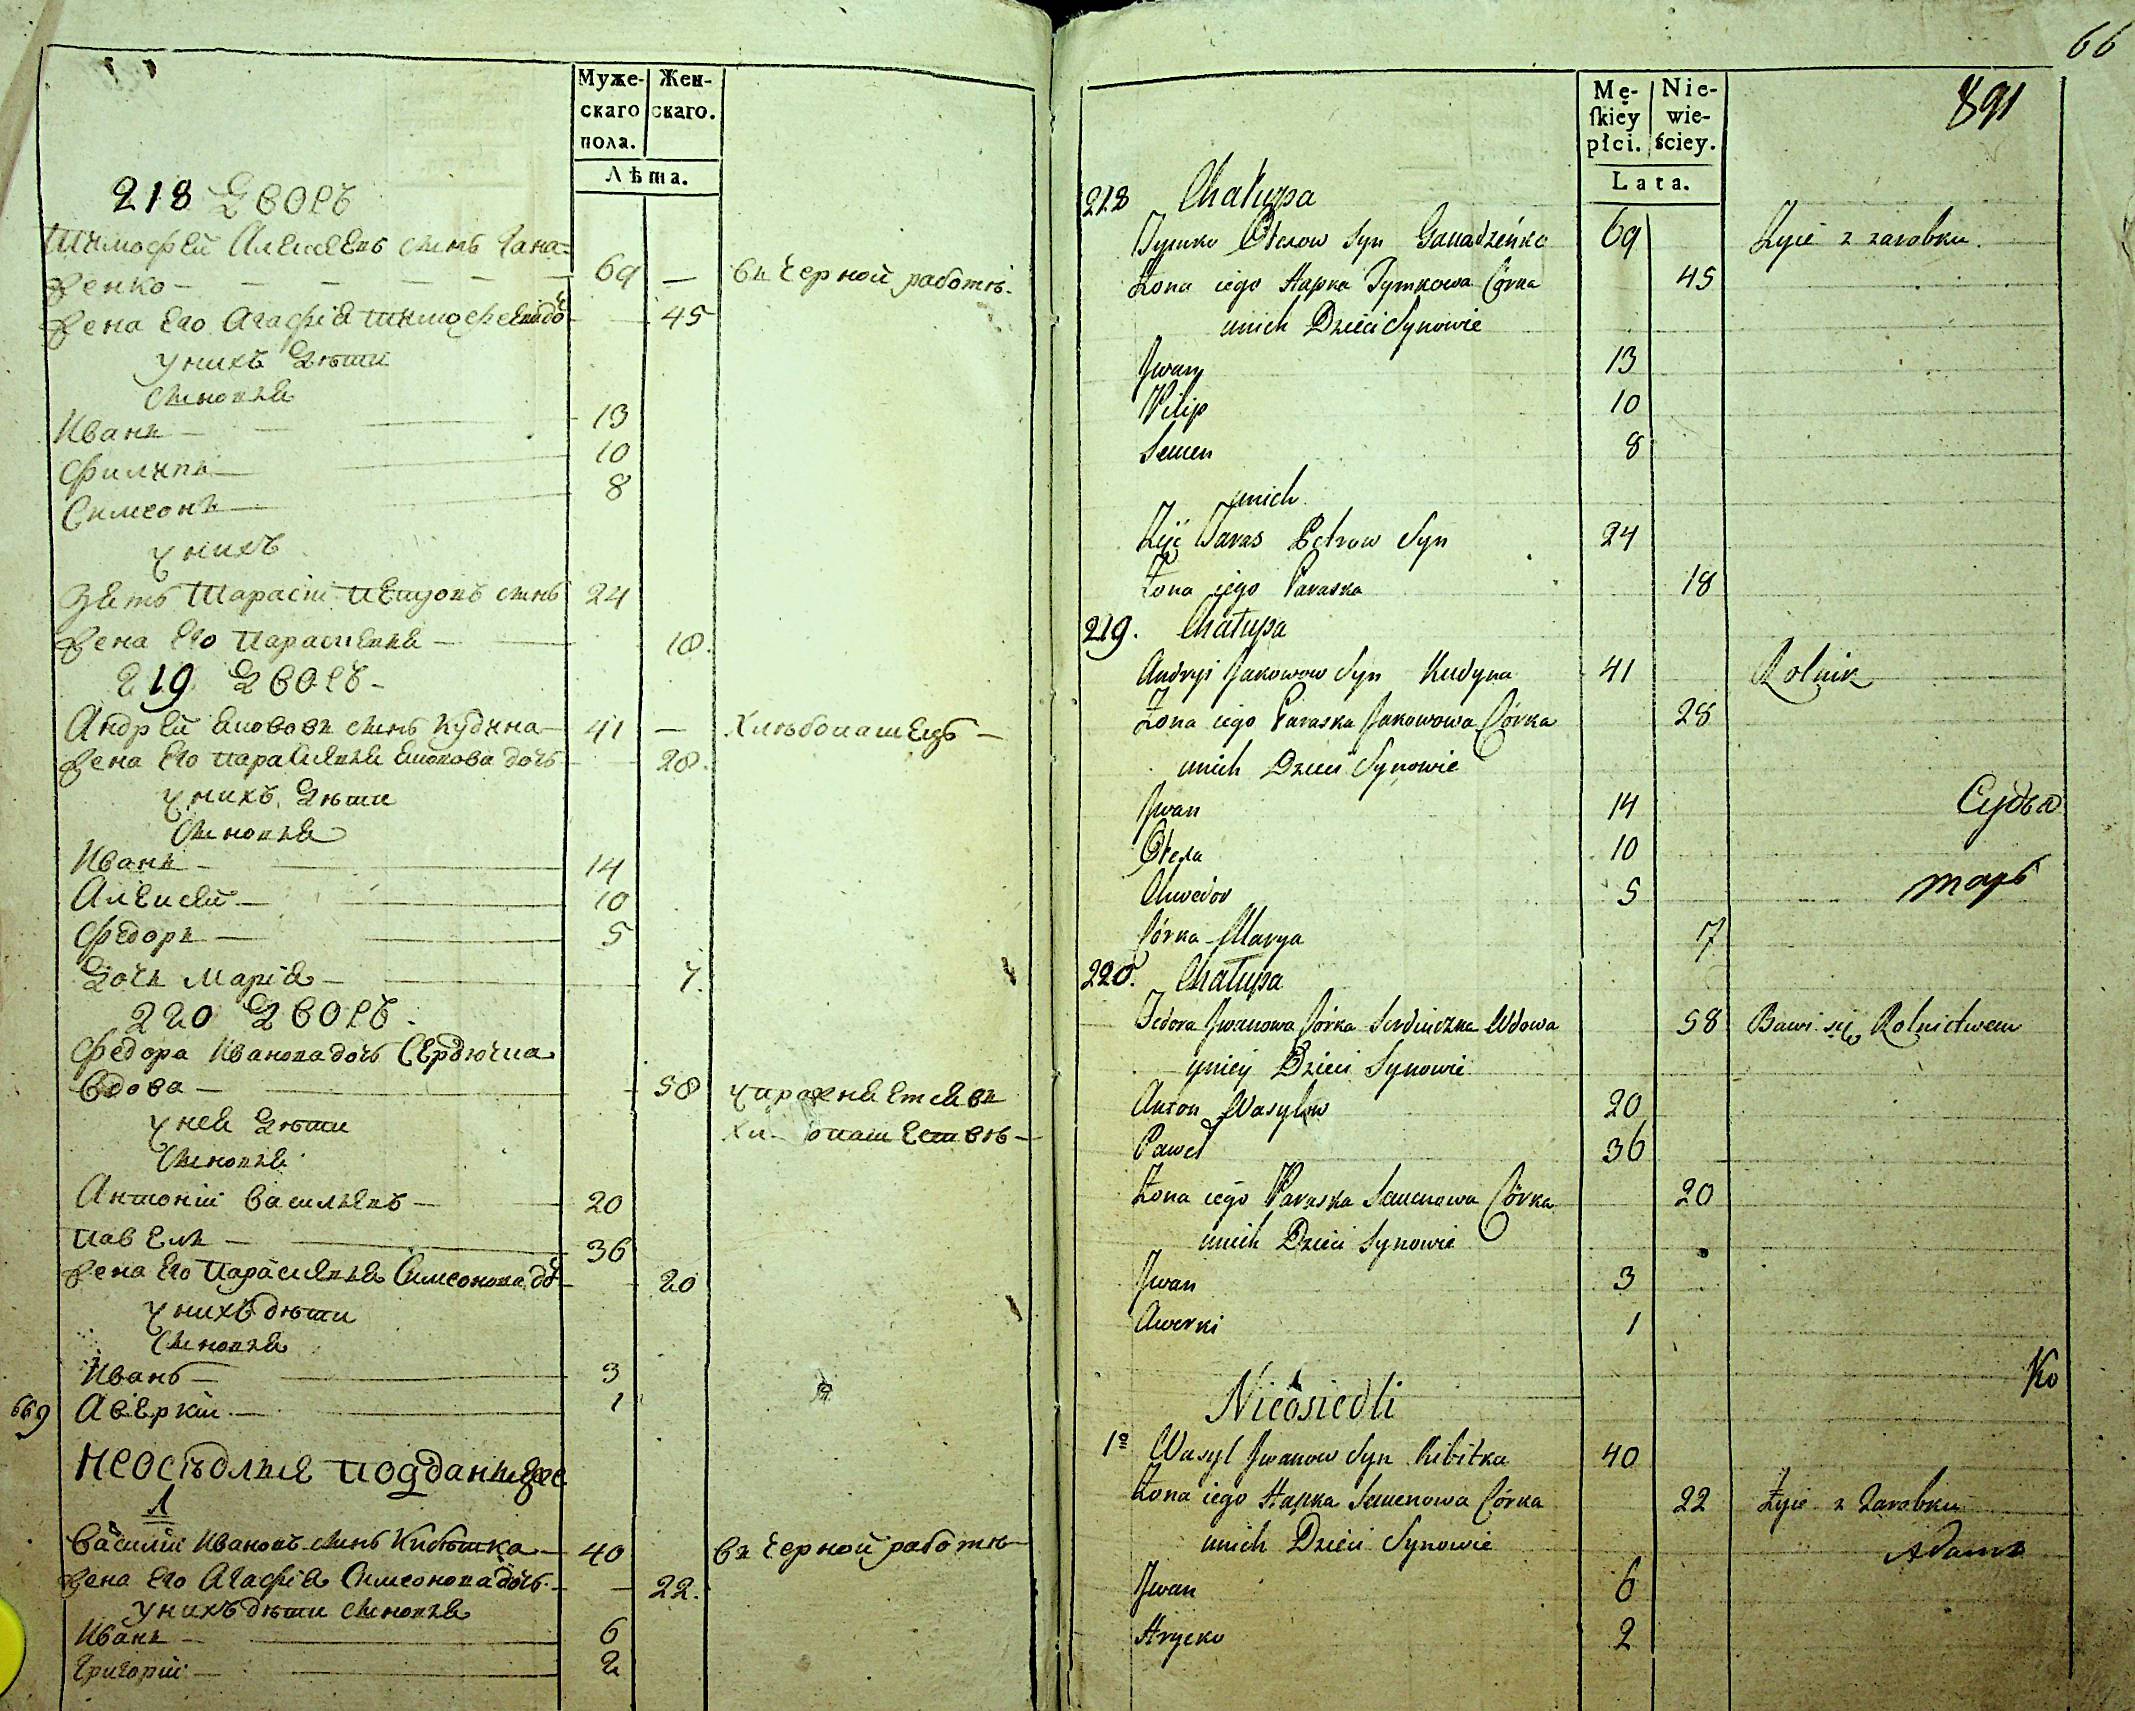 Муже-
скаго
пола.
Жен-
скаго.
Лѣта.
218 Дворъ
Тимофей Алексѣевъ сынъ Гана-
денко
69
въ черной работѣ
Жена его Агафія Тимофеева до
45
у нихъ дѣти
сыновья
Иванъ 13
Филипъ 10
Симеонъ 8
у нихъ
Зять Тарасій Петровъ сынъ 24
Жена его Парасковья 18.
219 Дворъ
Андрей Якововъ сынъ Кудина 41
хлѣбопашецъ
Жена его Парасковья Яковова дочь 28.
у нихъ дѣти
сыновья
Иванъ 14
Алексѣй 10
Федоръ 5
Дочь Марія 7.
220 Дворъ
Федора Иванова дочь Сердючка
вдова 58
упражняется въ
у нея дѣти
сыновья
Антоній Васильевъ 20
Павелъ 36
Жена его Парасковья Симеонова до 20
у нихъ дѣти
сыновья
Иванъ 3
669
Аверкій 1
Неосѣдлые подданные
1
Василій Ивановъ сынъ Кибитка 40
въ черной работѣ
Жена его Агафія Симеонова дочь 22.
у нихъ дѣти сыновья
Иванъ 6
Григорій 2
66
891
Mę-
ſkiey
płci.
Nie-
wie-
ściey.
Lata.
218 Chałupa
Tymko Olexow Syn Ganadzeńko 69 Żyie z zarobku.
Żona iego Hapka Tymkowa Córka 45
unich Dzieci Synowie
Jwan 13
Pilip 10
Semen 8
unich
Zięć Taras Petrow Syn 24
Żona iego Paraska 18
219. Chałupa
Andryi Jakowow Syn Kudyna 41 Rolnik
Żona iego Paraska Jakowowa Córka 28
unich Dzieci Synowie
Jwan 14
Судья
Olexa 10
Chwedor 5
Córka Marya 7
220. Chałupa
Fedora Jwanowa Córka Serdiuczka Wdowa 58 Bawi się Rolnictwem
uniey Dzieci Synowie
Anton Wasylow 20
Paweł 36
Żona iego Paraska Semenowa Córka 20
unich Dzieci Synowie
Jwan 3
Awerki 1
Ko
Nieosiedli
1º Wasyl Jwanow Syn Kibitka 40
Żona iego Hapka Semenowa Córka 22 Żyie z Zarobku
unich Dzieci Synowie
Jwan 6
Hryćko 2